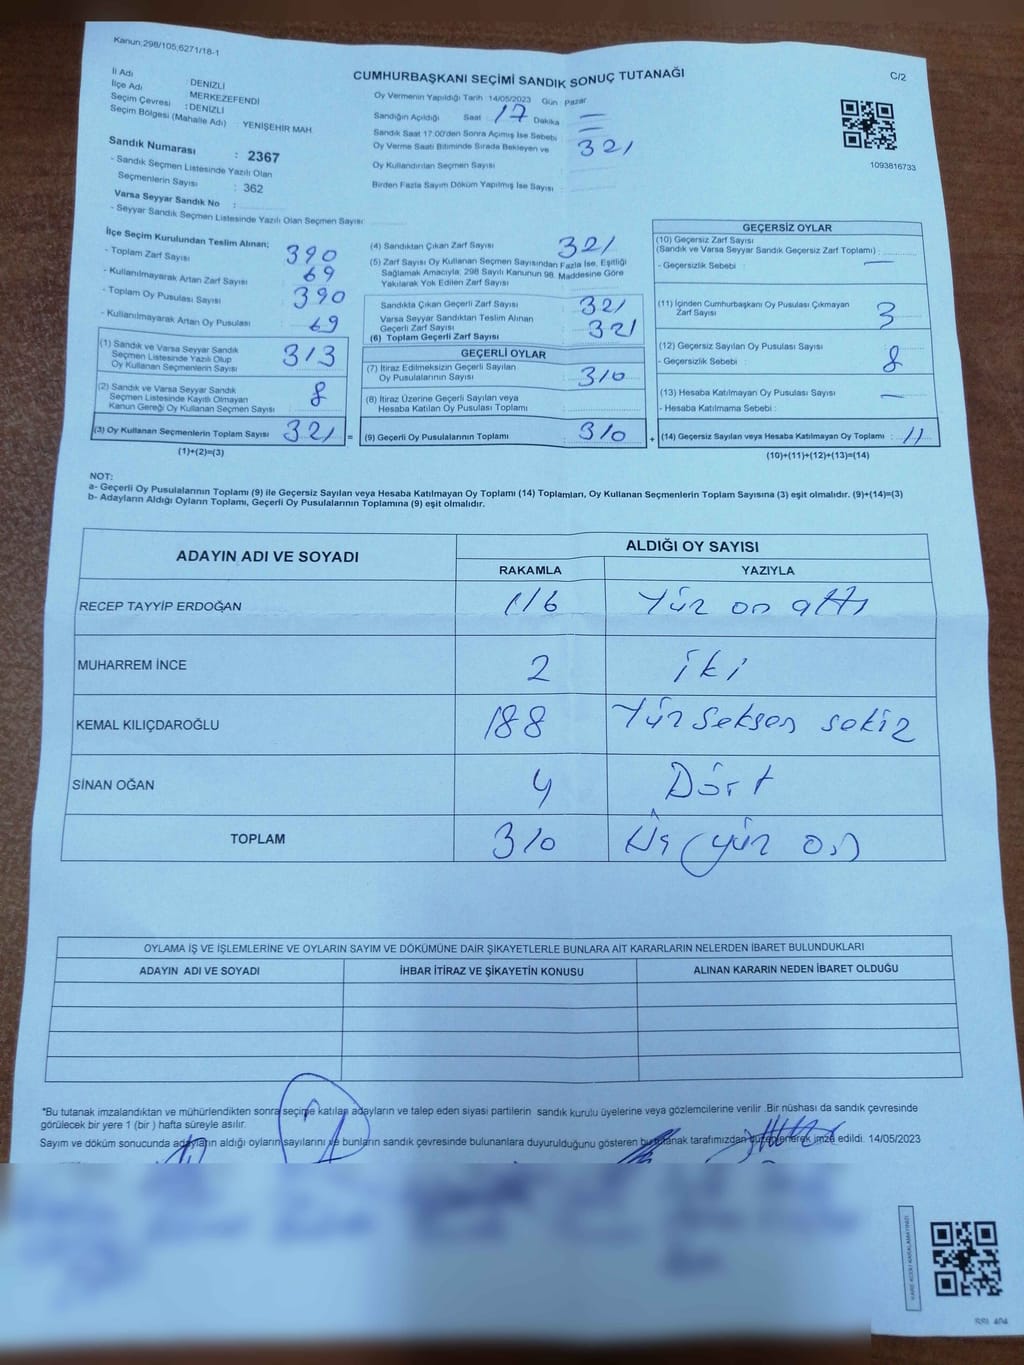 Kanun,298/105,6271/18-1
CUMHURBAŞKANI SEÇİMİ SANDIK SONUÇ TUTANAĞI
C/2
İl Adı : DENİZLİ
İlçe Adı : MERKEZEFENDİ
Seçim Çevresi : DENİZLİ
Seçim Bölgesi (Mahalle Adı) : YENİŞEHİR MAH
Sandık Numarası : 2367
- Sandık Seçmen Listesinde Yazılı Olan
Seçmenlerin Sayısı : 362
Varsa Seyyar Sandık No :
- Seyyar Sandık Seçmen Listesinde Yazılı Olan Seçmen Sayısı:
Oy Vermenin Yapıldığı Tarih :14/05/2023 Gün : Pazar
Sandığın Açıldığı Saat : 17 Dakika : —
Sandık Saat 17:00'den Sonra Açımış İse Sebebi : —
Oy Verme Saati Bitiminde Sırada Bekleyen ve 321
Oy Kullandırılan Seçmen Sayısı :
Birden Fazla Sayım Döküm Yapılmış İse Sayısı :
1093816733
İlçe Seçim Kurulundan Teslim Alınan;
- Toplam Zarf Sayısı : 390
- Kullanılmayarak Artan Zarf Sayısı : 69
- Toplam Oy Pusulası Sayısı : 390
- Kullanılmayarak Artan Oy Pusulası : 69
(1) Sandık ve Varsa Seyyar Sandık
Seçmen Listesinde Yazılı Olup
Oy Kullanan Seçmenlerin Sayısı : 313
(2) Sandık ve Varsa Seyyar Sandık
Seçmen Listesinde Kayıtlı Olmayan
Kanun Gereği Oy Kullanan Seçmen Sayısı : 8
(3) Oy Kullanan Seçmenlerin Toplam Sayısı : 321 =
(1)+(2)=(3)
(4) Sandıktan Çıkan Zarf Sayısı : 321
(5) Zarf Sayısı Oy Kullanan Seçmen Sayısından Fazla İse, Eşitliği
Sağlamak Amacıyla; 298 Sayılı Kanunun 98. Maddesine Göre
Yakılarak Yok Edilen Zarf Sayısı :
Sandıkta Çıkan Geçerli Zarf Sayısı : 321
Varsa Seyyar Sandıktan Teslim Alınan
Geçerli Zarf Sayısı :
(6) Toplam Geçerli Zarf Sayısı : 321
GEÇERLİ OYLAR
(7) İtiraz Edilmeksizin Geçerli Sayılan
Oy Pusulalarının Sayısı : 310
(8) İtiraz Üzerine Geçerli Sayılan veya
Hesaba Katılan Oy Pusulası Toplamı :
(9) Geçerli Oy Pusulalarının Toplamı : 310 +
GEÇERSİZ OYLAR
(10) Geçersiz Zarf Sayısı
(Sandık ve Varsa Seyyar Sandık Geçersiz Zarf Toplamı) :
- Geçersizlik Sebebi : —
(11) İçinden Cumhurbaşkanı Oy Pusulası Çıkmayan
Zarf Sayısı : 3
(12) Geçersiz Sayılan Oy Pusulası Sayısı : 8
- Geçersizlik Sebebi :
(13) Hesaba Katılmayan Oy Pusulası Sayısı : —
- Hesaba Katılmama Sebebi :
(14) Geçersiz Sayılan veya Hesaba Katılmayan Oy Toplamı : 11
(10)+(11)+(12)+(13)=(14)
NOT:
a- Geçerli Oy Pusulalarının Toplamı (9) ile Geçersiz Sayılan veya Hesaba Katılmayan Oy Toplamı (14) Toplamları, Oy Kullanan Seçmenlerin Toplam Sayısına (3) eşit olmalıdır. (9)+(14)=(3)
b- Adayların Aldığı Oyların Toplamı, Geçerli Oy Pusulalarının Toplamına (9) eşit olmalıdır.
ADAYIN ADI VE SOYADI
ALDIĞI OY SAYISI
RAKAMLA YAZIYLA
RECEP TAYYİP ERDOĞAN 116 Yüz on altı
MUHARREM İNCE 2 iki
KEMAL KILIÇDAROĞLU 188 Yüz seksen sekiz
SİNAN OĞAN 4 Dört
TOPLAM 310 üç (yüz on)
OYLAMA İŞ VE İŞLEMLERİNE VE OYLARIN SAYIM VE DÖKÜMÜNE DAİR ŞİKAYETLERLE BUNLARA AİT KARARLARIN NELERDEN İBARET BULUNDUKLARI
ADAYIN ADI VE SOYADI İHBAR İTİRAZ VE ŞİKAYETİN KONUSU ALINAN KARARIN NEDEN İBARET OLDUĞU
*Bu tutanak imzalandıktan ve mühürlendikten sonra seçime katılan adayların ve talep eden siyasi partilerin sandık kurulu üyelerine veya gözlemcilerine verilir .Bir nüshası da sandık çevresinde
görülecek bir yere 1 (bir ) hafta süreyle asılır.
Sayım ve döküm sonucunda adayların aldığı oyların sayılarını ve bunların sandık çevresinde bulunanlara duyurulduğunu gösteren bu tutanak tarafımızdan düzenlenerek imza edildi. 14/05/2023
KARE KODU KARALAMAYINIZ!